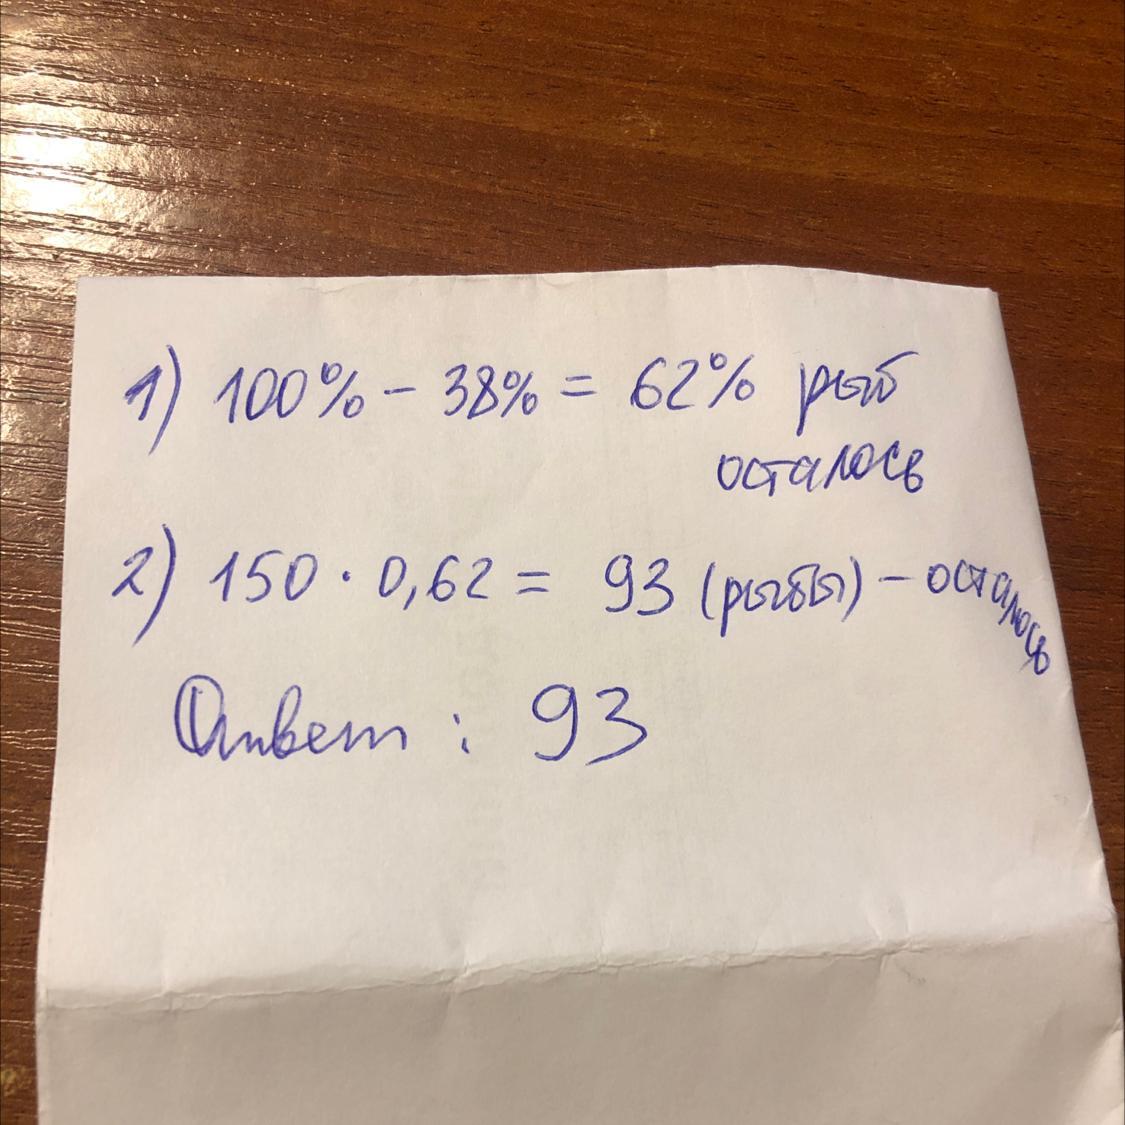 1) 100% - 38% = 62% рыб
осталось
2) 150 · 0,62 = 93 (рыбы) - осталось
Ответ : 93